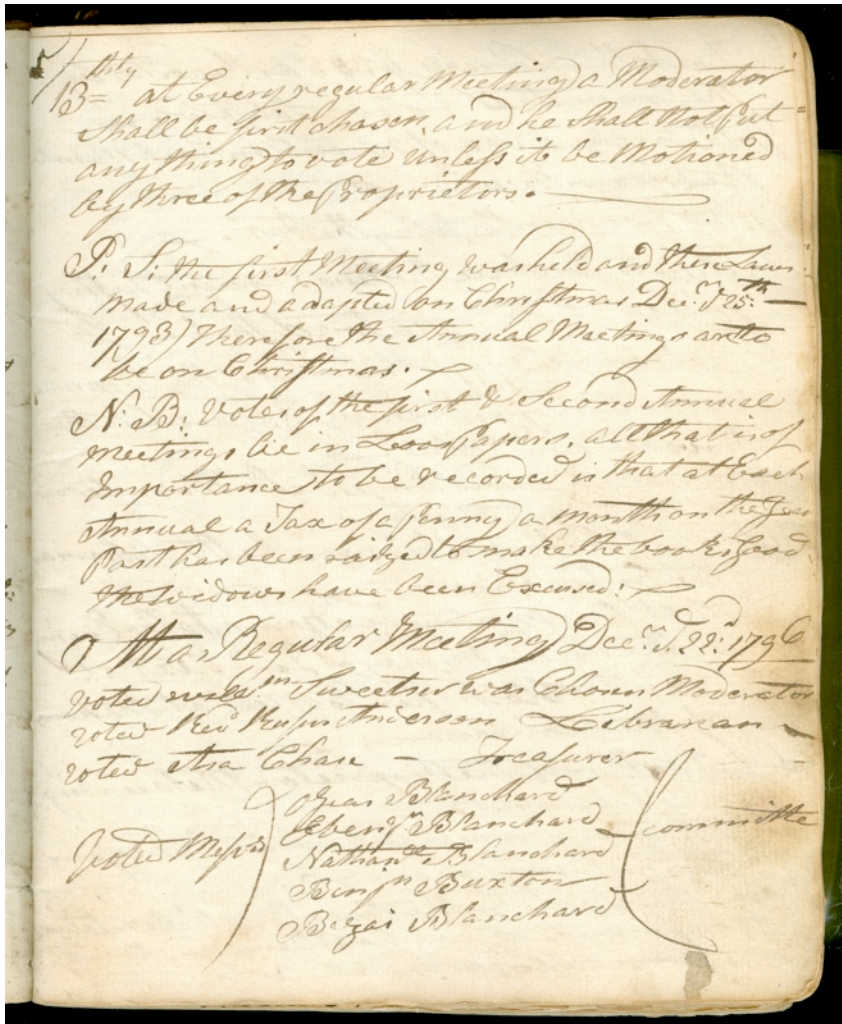 5
13=thly at Every regular Meeting a Moderator
Shall be first chosen, and he Shall Not Put =
any thing to vote unless it be Motioned
by three of the Proprietors.
P: S: the first Meeting was held and these Laws
made and adapted on Christmas Decr. 25:th
1793) Therefore the Annual Meetings are to
be on Christmas.
N: B: Votes of the first & Second Annual
meetings lie in Loos Papers, all that is of
Importance to be recorded is that at Each
Annual a Tax of a Penny a month on the
Past has been raized to make the books Good
the widows have been Excused:
At a Regular Meeting Decr. 22:d 1796
voted Wm. Sweetser was Chosen Moderator
voted Revd Rufus Anderson Librarean
voted Asa Chase — Treasurer
Voted Messrs
Ozias Blanchard
Ebenr Blanchard
Nathanel Blanchard
Benjn Buxton
Bezai Blanchard
committe